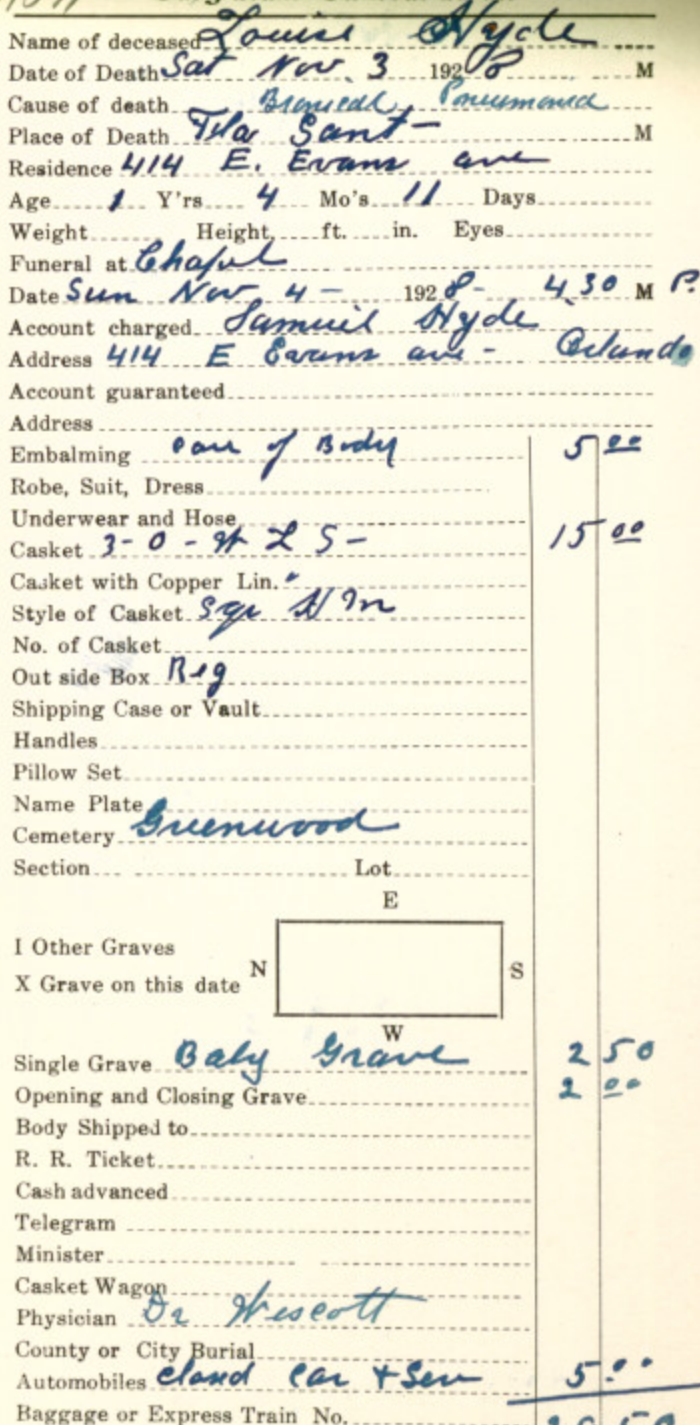 Name of deceased Louise Hyde
Date of Death Sat Nov. 3 1928 M
Cause of death Broncal Pneumonia
Place of Death Fla Sant- M
Residence 414 E. Evans ave
Age 1 Y'rs 4 Mo's 11 Days
Weight Height ft. in. Eyes
Funeral at Chapel
Date Sun Nov 4- 1928- 4.30 M P.
Account charged Samuel Hyde
Address 414 E Evans ave- Orlando
Account guaranteed
Address
Embalming care of Body 5 00
Robe, Suit, Dress
Underwear and Hose
Casket 3-0- L S- 15 00
Casket with Copper Lin.
Style of Casket Sqr
No. of Casket
Out side Box Reg
Shipping Case or Vault
Handles
Pillow Set
Name Plate
Cemetery Greenwood
Section Lot
E
I Other Graves
N S
X Grave on this date
W
Single Grave Baby Grave 2 50
Opening and Closing Grave 2 00
Body Shipped to
R. R. Ticket
Cash advanced
Telegram
Minister
Casket Wagon
Physician Dr Wescott
County or City Burial
Automobiles closd Car + Serv 5.00
Baggage or Express Train No.